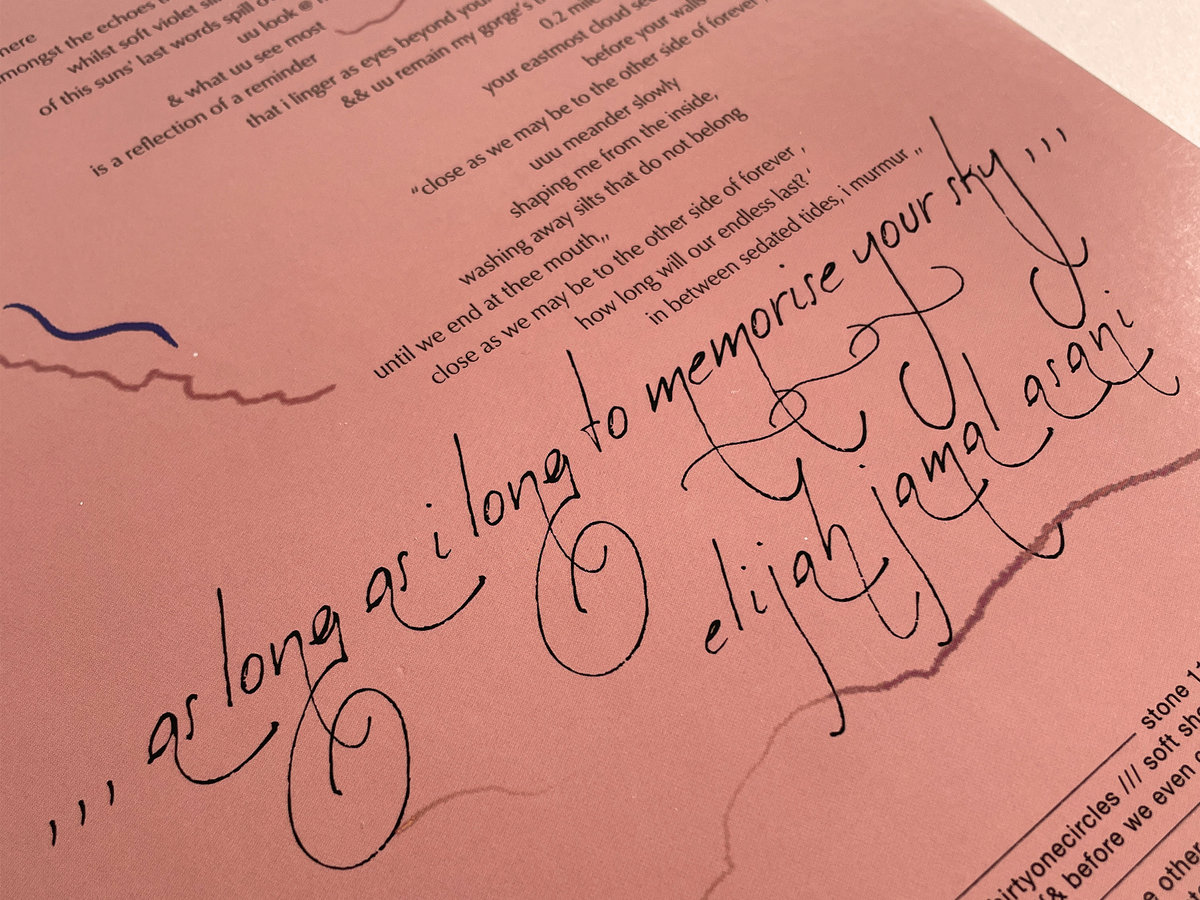 here
amongst the echoes
whilst soft violet
of this suns' last words spill
uu look @
& what uu see most
is a reflection of a reminder
that i linger as eyes beyond
&& uu remain my gorge's
0.2
your eastmost cloud
before your walls
"close as we may be to the other side of forever
uuu meander slowly
shaping me from the inside,
washing away silts that do not belong
until we end at thee mouth,,
close as we may be to the other side of forever ,
how long will our endless last?'
in between sedated tides, i murmur ,,
,,, as long as i long to memorise your sky ,,,
elijah jamal asani
stone
thirtyonecircles /// soft
& before we even
other